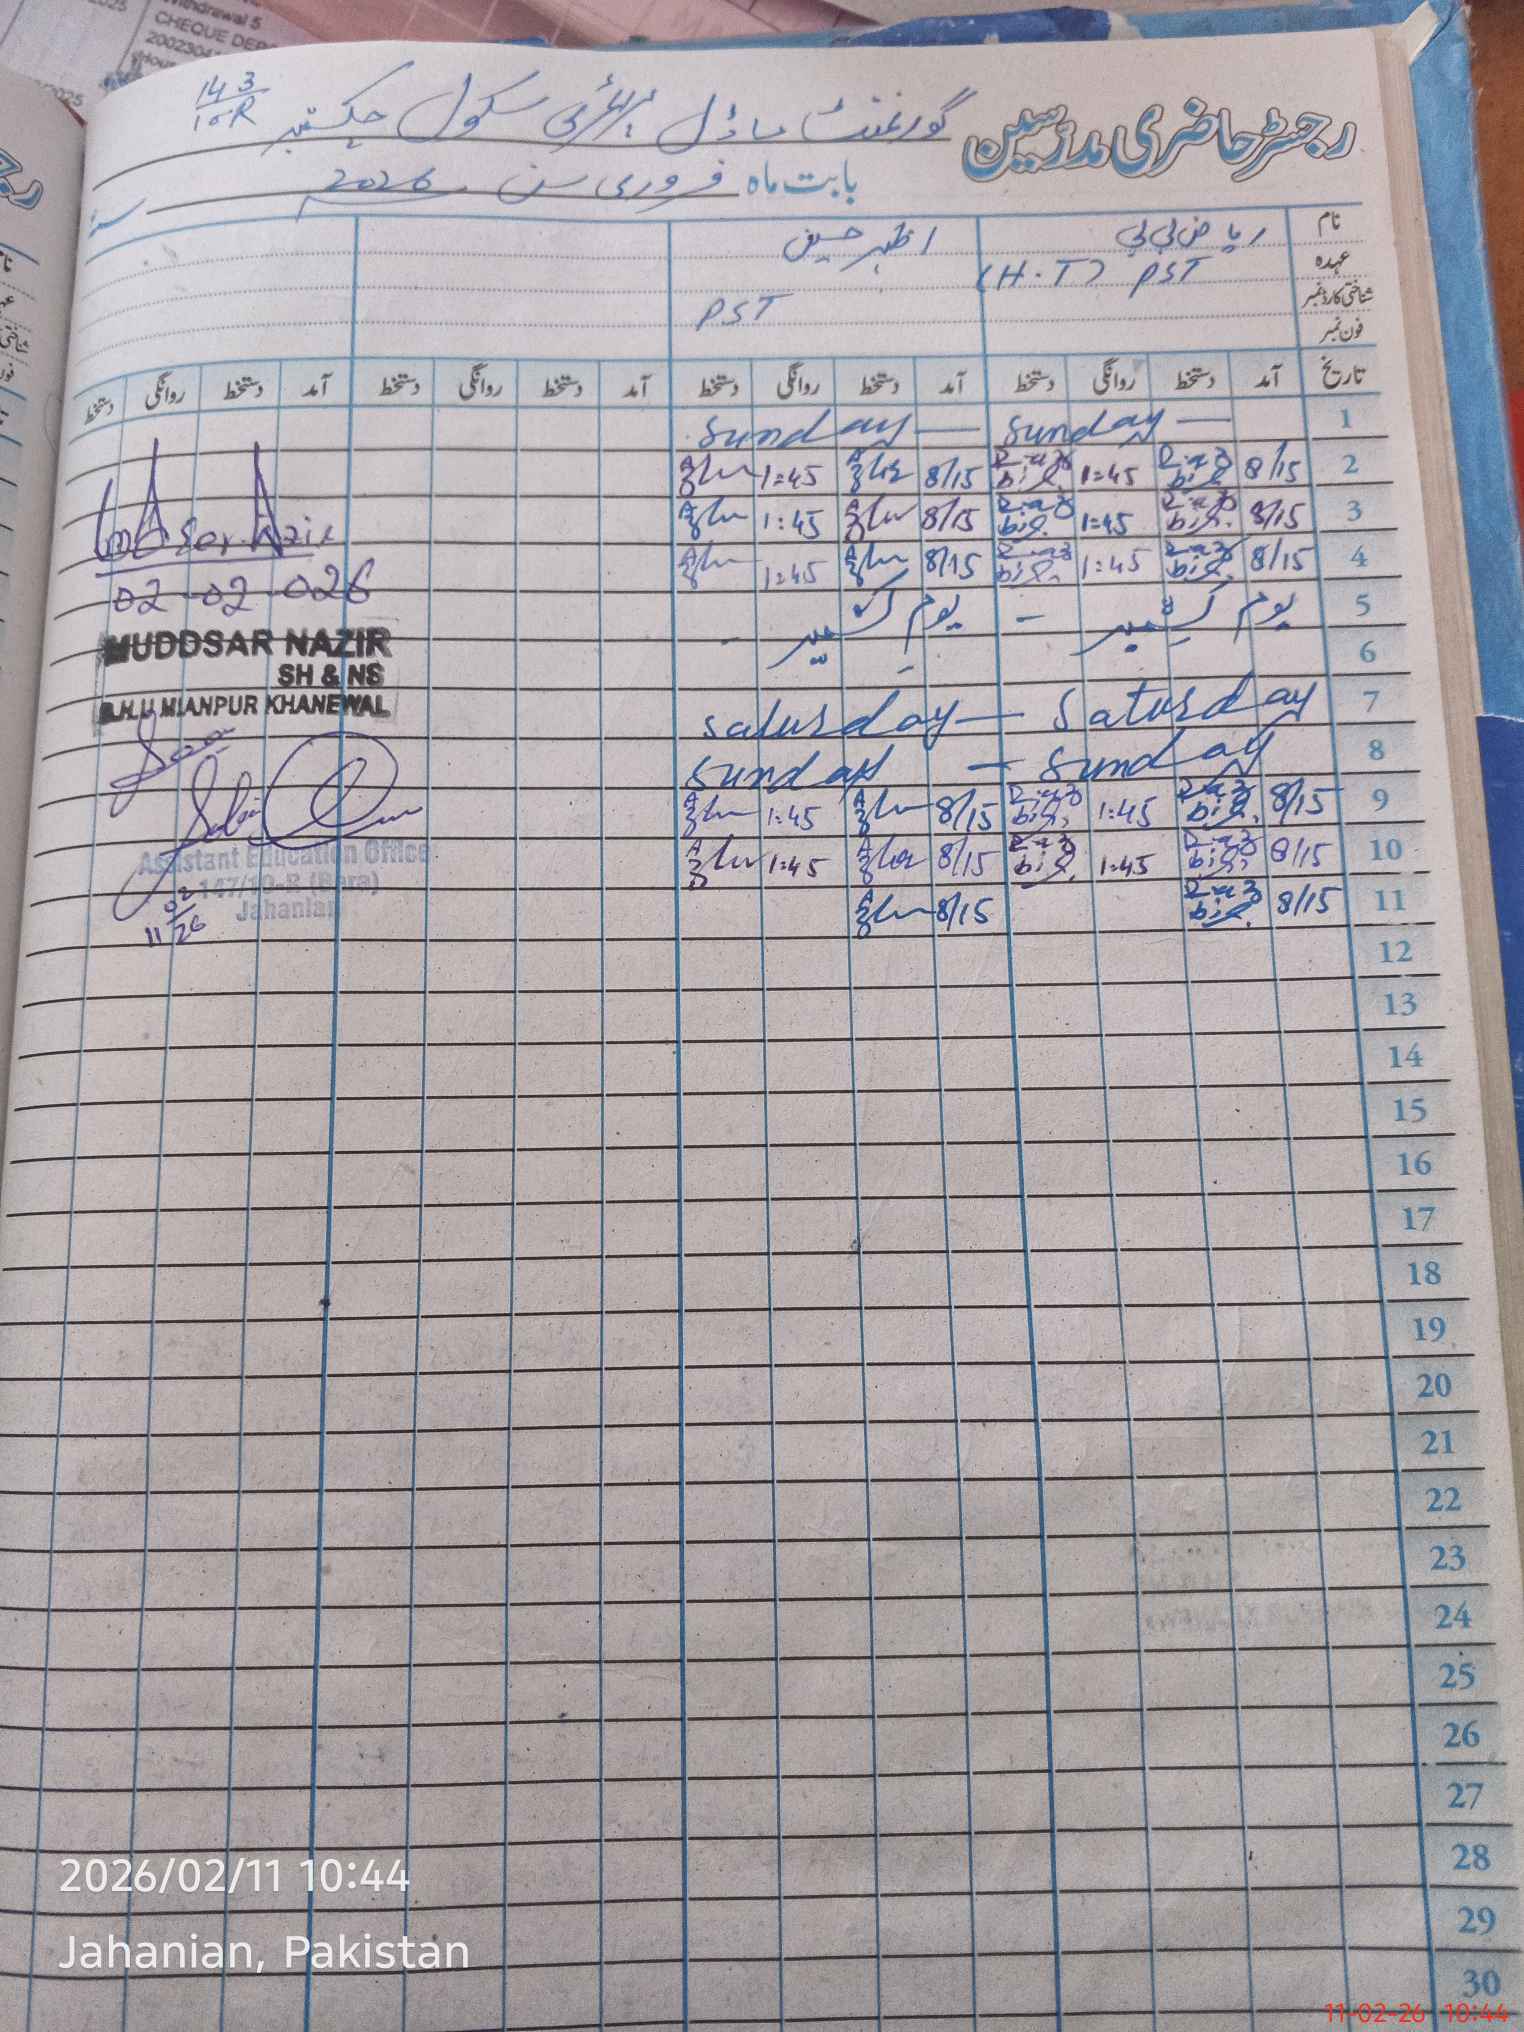 Withdrawal 5
CHEQUE DEP
2002304
2025
143
10-R
رجسٹر حاضری مدرسین گورنمنٹ ماڈل پرائمری سکول چک نمبر
بابت ماہ فروری سن 2026
نام ریاض بی بی اظہر حسین
عہدہ PST (H.T) PST
شناختی کارڈ نمبر
فون نمبر
تاریخ آمد دستخط روانگی دستخط آمد دستخط روانگی دستخط آمد دستخط روانگی دستخط آمد دستخط روانگی دستخط
1 Sunday — Sunday —
2 8/15 Riaz bibi 1:45 Riaz bibi 8/15 1:45
3 8/15 Riaz bibi 1:45 Riaz bibi 8/15 1:45
4 8/15 Riaz bibi 1:45 Riaz bibi 8/15 1:45
5 یوم کشمیر - یوم کشمیر -
6
7 Saturday — Saturday
8 Sunday — Sunday
9 8/15 Riaz bibi 1:45 Riaz bibi 8/15 1:45
10 8/15 Riaz bibi 1:45 Riaz bibi 8/15 1:45
11 8/15 Riaz bibi 8/15
12
13
14
15
16
17
18
19
20
21
22
23
24
25
26
27
28
29
30
Muddsar Nazir
02-02-026
MUDDSAR NAZIR
SH & NS
B.H.U MIANPUR KHANEWAL
Assistant Education Office
147/10-R (Bora)
Jahanian
11/02/26
2026/02/11 10:44
Jahanian, Pakistan
11-02-26 10:44